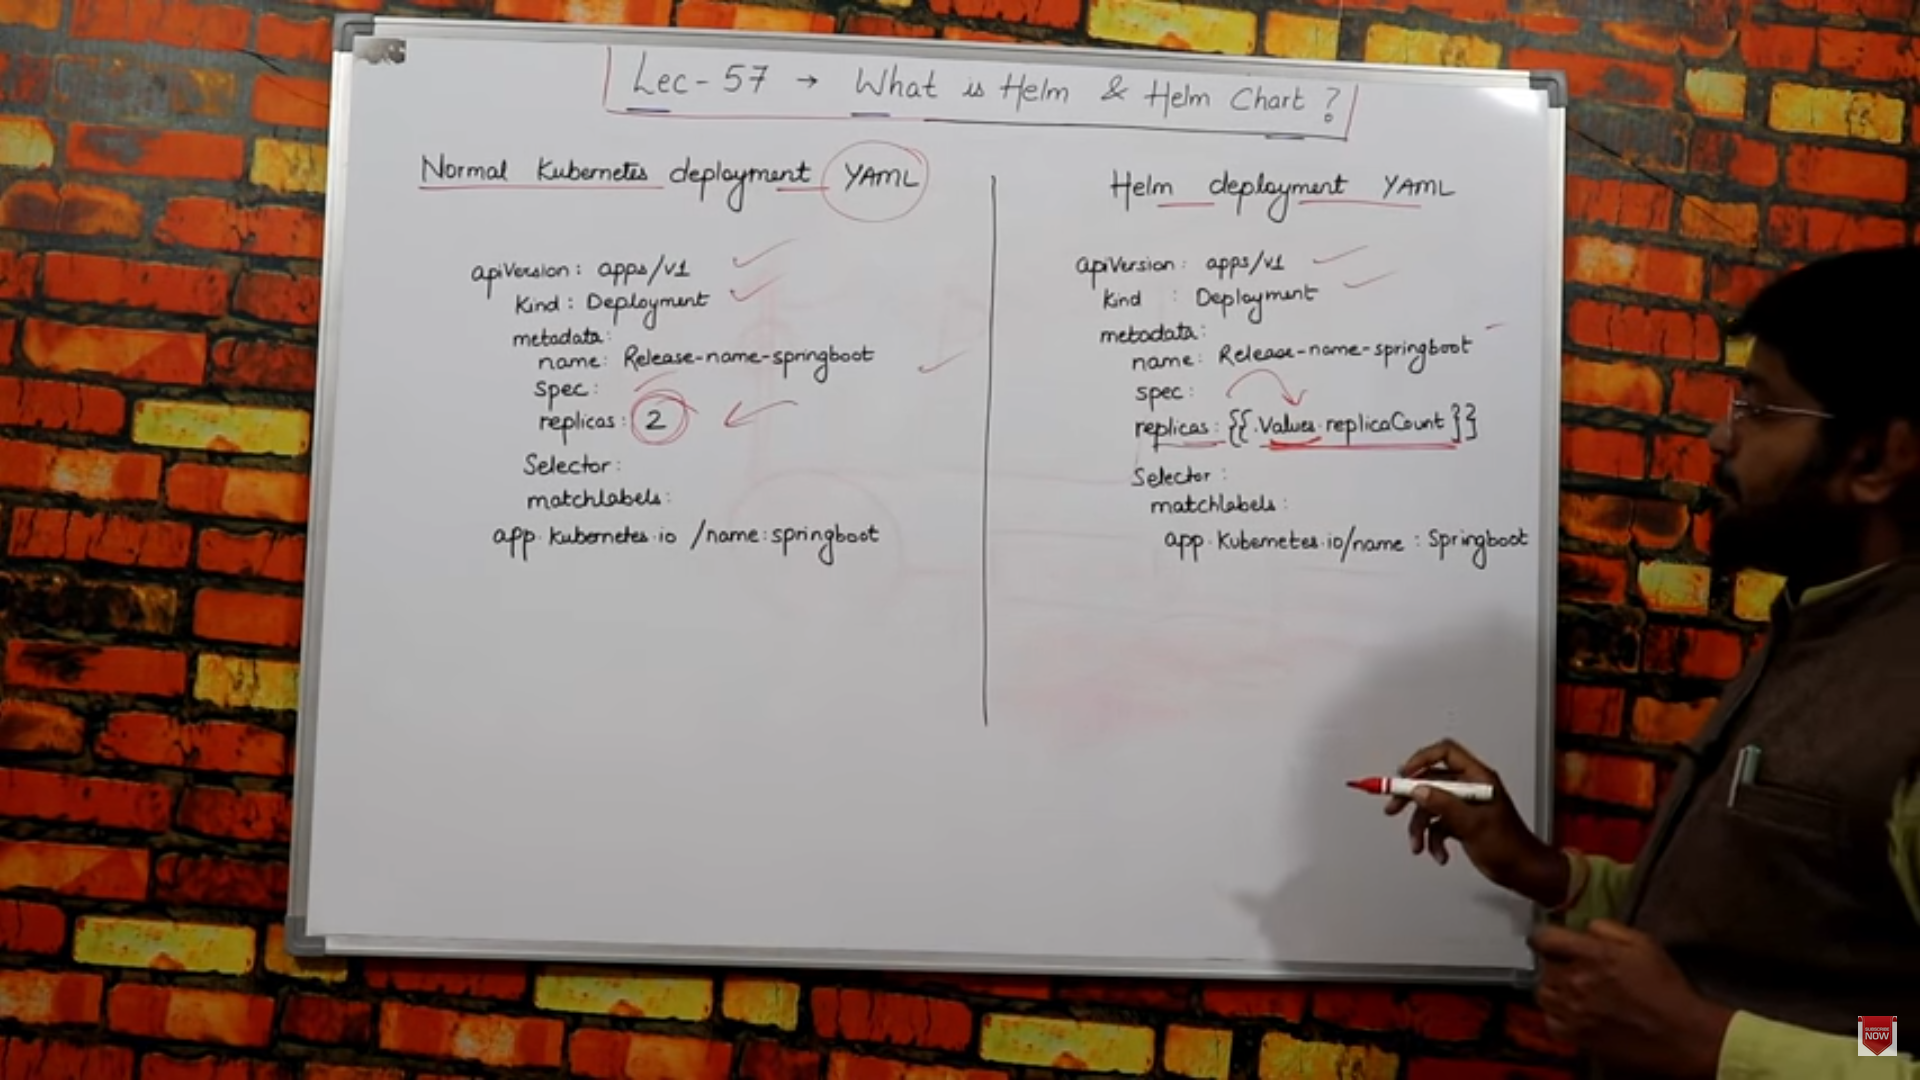 Lec-57 → What is Helm & Helm Chart?
Normal Kubernetes deployment YAML
apiVersion: apps/v1
Kind: Deployment
metadata:
name: Release-name-springboot
spec:
replicas: 2
Selector:
matchlabels:
app.kubernetes.io/name:springboot
Helm deployment YAML
apiVersion: apps/v1
Kind: Deployment
metadata:
name: Release-name-springboot
spec:
replicas: {{.Values.replicaCount}}
Selector:
matchlabels:
app.Kubernetes.io/name: Springboot
SUBSCRIBE
NOW